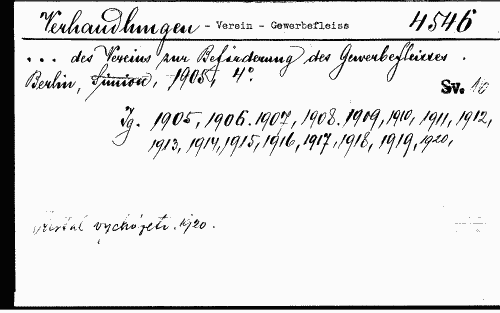 Verhandlungen - Verein - Gewerbefleiss 4546
... des Vereins zur Beförderung des Gewerbefleisses.
Berlin, Simion, 1905, 4°.
Sv. 10
Jg. 1905, 1906. 1907, 1908. 1909, 1910, 1911, 1912,
1913, 1914, 1915, 1916, 1917, 1918, 1919, 1920,
Přestal vycházeti. 1920.